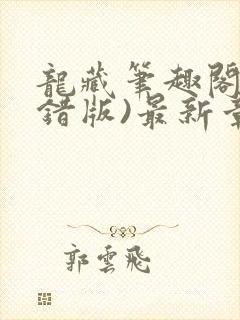 龍藏筆趣閣
錯版)最新章
郭雲飛